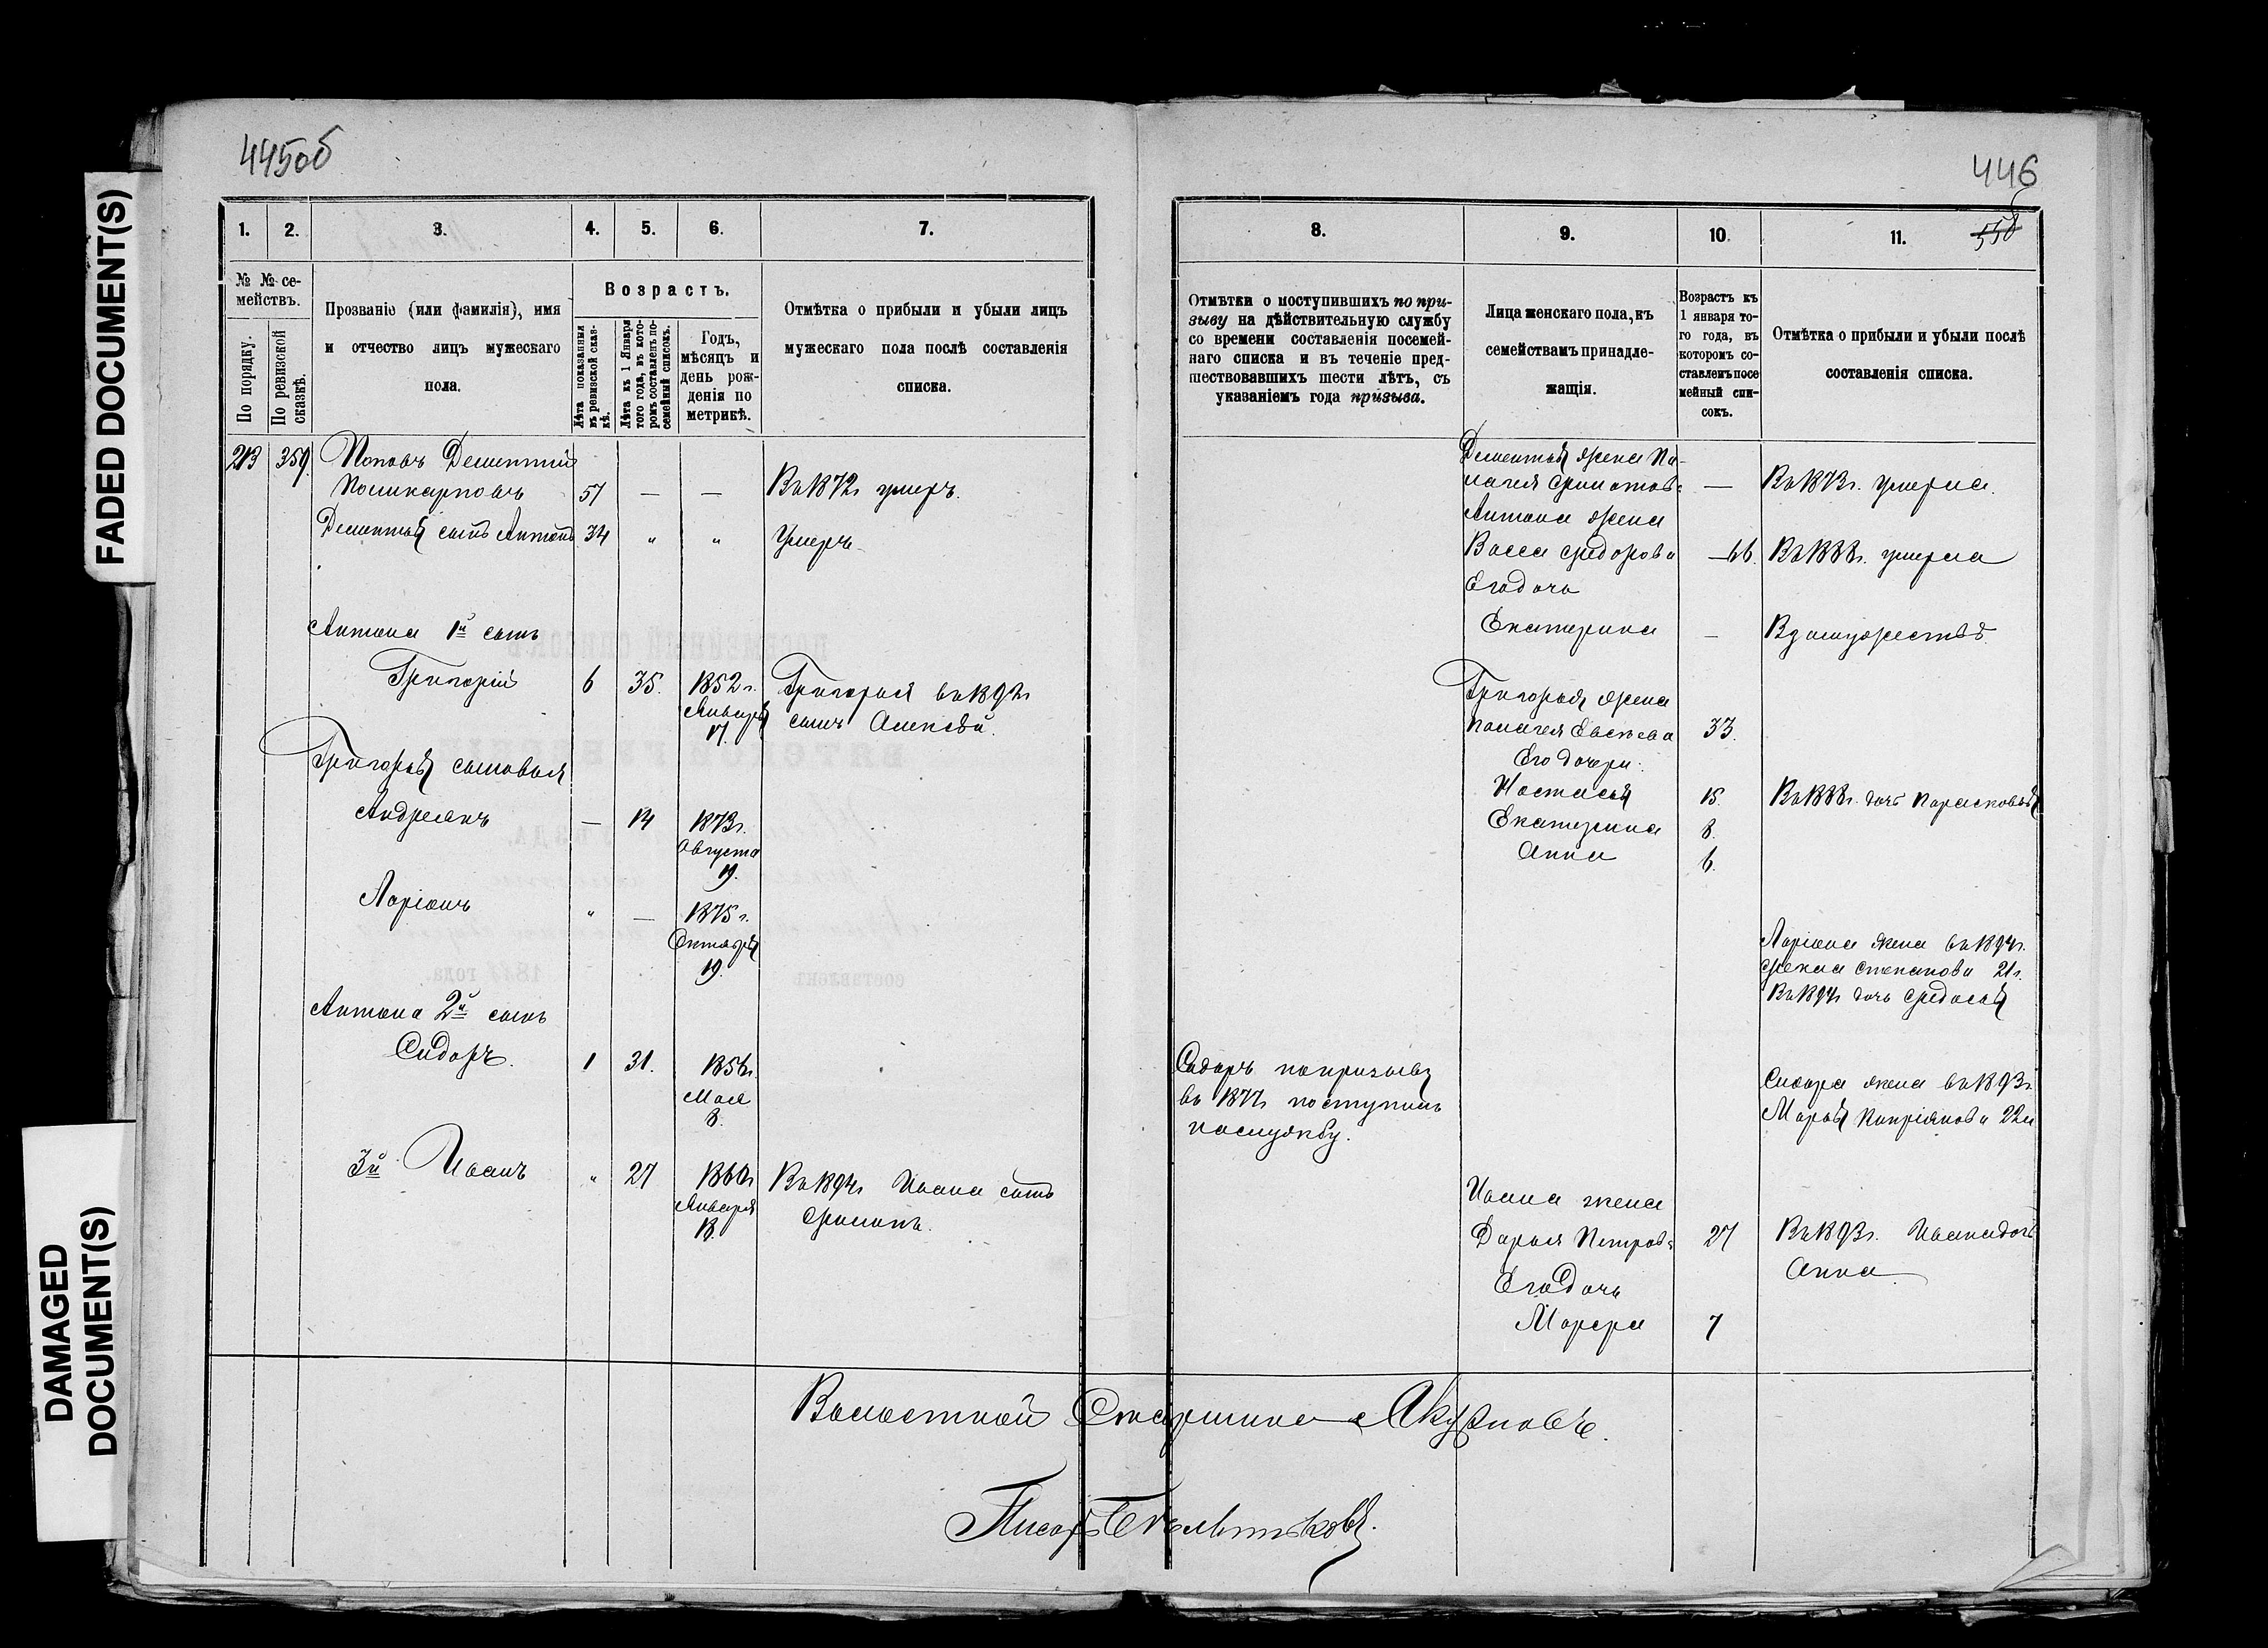 FADED DOCUMENT(S)
DAMAGED
DOCUMENT(S)
445об
1. 2. 3. 4. 5. 6. 7.
№ № се-
мействъ.
По порядку.
По ревизской
сказкѣ.
Прозваніе (или фамилія), имя
и отчество лицъ мужескаго
пола.
Возрастъ.
Лѣта показанныя
въ ревизской сказ-
кѣ.
Лѣта къ 1 Января
того года, въ кото-
ромъ составленъ по-
семейный списокъ.
Годъ,
мѣсяцъ и
день рож-
денія по
метрикѣ.
Отмѣтка о прибыли и убыли лицъ
мужескаго пола послѣ составленія
списка.
213 359 Поповъ Дементий
Поликарповъ 57 — — Въ 1872г умеръ.
Дементья сынъ Антонъ 34 " " Умеръ
Антона 1й сынъ
Григорій 6 35. 1852 г. Григорья въ 1892г
Января сынъ Алексѣй.
17.
Григорья сыновья
Андреянъ — 14 1873г.
Августа
19.
Ларіонъ " — 1875 г.
Октября
19.
Антона 2й сынъ
Сидоръ. 1 31. 1856г.
Мая
8.
3й Иванъ " 27 1860г Въ 1894г Ивана сынъ
Января Филипъ.
18.
446
550
8. 9. 10. 11.
Отмѣтки о поступившихъ по при-
зыву на дѣйствительную службу
со времени составленія посемей-
наго списка и въ теченіе пред-
шествовавшихъ шести лѣтъ, съ
указаніемъ года призыва.
Лица женскаго пола, къ
семействамъ принадле-
жащія.
Возрастъ къ
1 января то-
го года, въ
которомъ со-
ставленъ посе
мейный спи-
сокъ.
Отмѣтка о прибыли и убыли послѣ
составленія списка.
Дементья жена Па-
лагея — Въ 1873г. умерла.
Антона жена
Васса Федорова — 66. Въ 1888г. умерла
Его дочь
Екатерина — В замужествѣ.
Григорья жена
Палагея Евсѣева 33.
Его дочери.
Настасья 15. Въ 1888г. дочь Парасковья
Екатерина 8.
Анна 6.
Ларіона жена въ 1894г.
Фекла Степанова 21г.
Въ 1894г дочь Федосья
Сидоръ по призыву
въ 1877г поступилъ
на службу.
Сидора жена въ 1893г
Марья Кипріянова 22л
Ивана жена
Дарья Петров. 27 Въ 1893г. Ивана дочь
Анна
Его дочь
Марфа 7
Волостной Старшина
Писарь